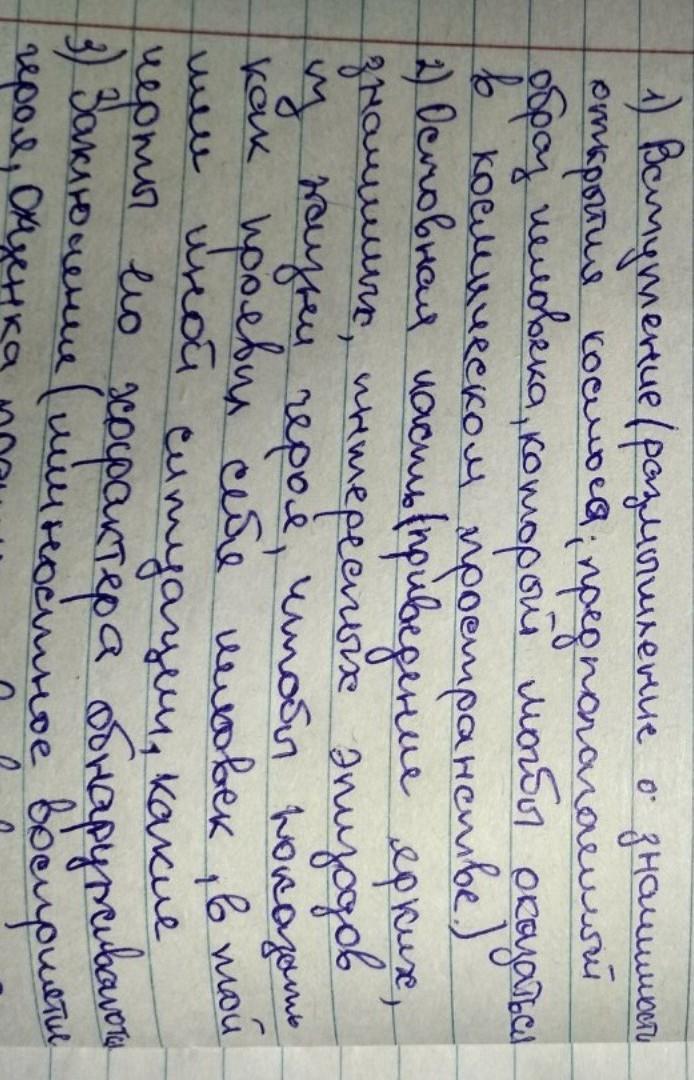 1) Вступление (размышление о значимости
открытия космоса, предполагаемый
образ человека, который мог бы оказаться
в космическом пространстве.)
2) Основная часть (приведение ярких,
значимых, интересных эпизодов
из жизни героя, чтобы показать
как проявил себя человек, в той
или иной ситуации, какие
черты его характера обнаруживаются
3) Заключение (личностное восприятие
героя, оценка